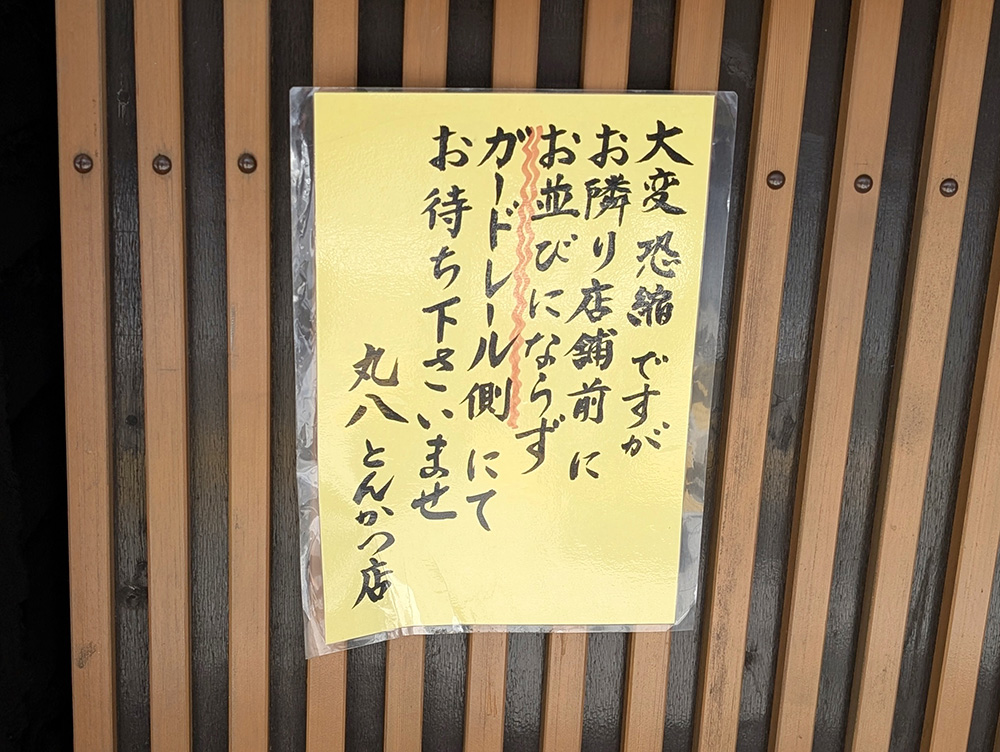 大変恐縮ですが
お隣り店舗前に
お並びにならず
ガードレール側にて
お待ち下さいませ
丸八とんかつ店